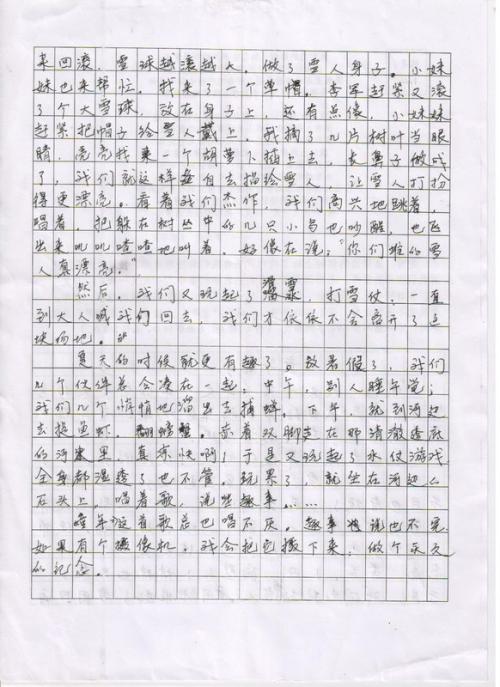 来回滚，雪球越滚越大。做了雪人身子。小妹
妹也来帮忙，找来了一个草帽。李军赶紧又滚
了个大雪球，放在身子上，还有点像，小妹妹
赶紧把帽子给雪人戴上。我摘了几片树叶当眼
睛，亮亮找来一个胡萝卜插上去，长鼻子做成
了，我们就这样各自去描绘雪人，让雪人打扮
得更漂亮。看着我们杰作，我们高兴地跳着，
唱着，把躲在树丛中的几只小鸟也吵醒，也飞
出来叽叽喳喳地叫着，好像在说："你们堆的雪
人真漂亮。"
然后，我们又玩起了滑雪，打雪仗，一直
到大人喊我们回去，我们才依依不舍离开了这
块场地。
夏天的时候就更有趣了。放暑假了，我们
几个伙伴总会凑在一起，中午，别人睡午觉；
我们几个悄悄地溜出去捕蝉。下午，就到河边
去捉鱼虾、螃蟹。赤着双脚走在那清澈透底
的河里，真凉快啊！于是又玩起了水仗游戏
全身都湿透了也不管。玩累了，就坐在河边
石头上，唱着歌，说些趣事……
童年这首歌总也唱不厌。趣事也说也不完
如果有个摄像机，我会把它摄下来，做个永久
的记念。